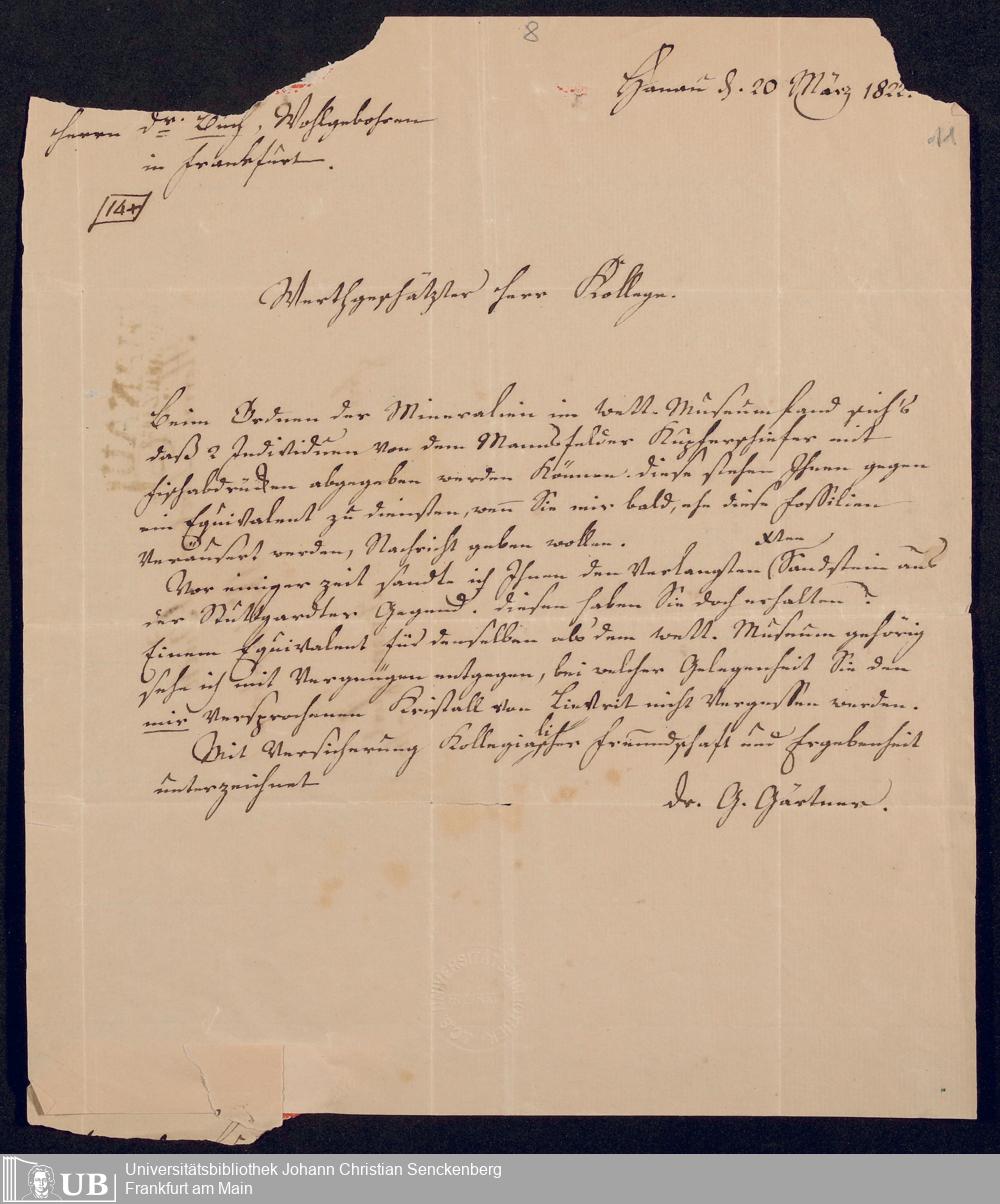 8
Hanau d. 20 März 1822.
11
Herrn Dr. Buch, Wohlgebohren
in Frankfurt.
14x
Werthgeschätzter Herr Kollege.
Beim Ordnen der Mineralien im Wett. Museum fand sich's
daß 2 Individuen von dem Mannsfelder Kupferschiefer mit
Fischabdrücken abgegeben werden können. diese stehen Ihnen gegen
ein Equivalent zu diensten, wenn Sie mir bald, ehe diese Fossilien
veräusert werden, Nachricht geben wollen.
Vor einiger Zeit sandte ich Ihnen den verlangten Sandstein aus
der Stuttgardter Gegend. diesen haben Sie doch erhalten?
Einem Equivalent für denselben als dem Wett. Museum gehörig
sehe ich mit Vergnügen entgegen, bei welcher Gelegenheit Sie den
mir versprochenen Kristall von Lievrit nicht vergessen werden.
Mit Versicherung Kollegialischer Freundschaft und Ergebenheit
unterzeichnet
Dr. G. Gärtner.
UNIVERSITÄTSBIBLIOTHEK
UB
Universitätsbibliothek Johann Christian Senckenberg
Frankfurt am Main